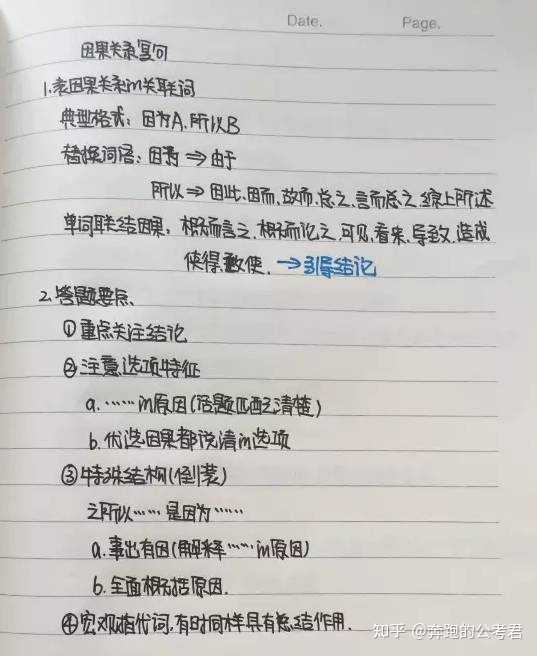 Date.  Page.
因果关系复句
1.表因果关系的关联词
典型格式：因为A，所以B
替换词语：因为⇒由于
所以⇒因此、因而、故而、总之、言而总之、综上所述
单词联结因果：概而言之、概而论之、可见、看来、导致、造成
使得、致使．→引导结论
2.答题要点、
①重点关注结论
②注意选项特征
a.……的原因(话题匹配清楚)
b.优选因果都说清的选项
③特殊结构(倒装)
之所以……是因为……
a.事出有因(解释……的原因)
b.全面概括原因.
④宏观指代词，有时同样具有总结作用.
知乎 @奔跑的公考君